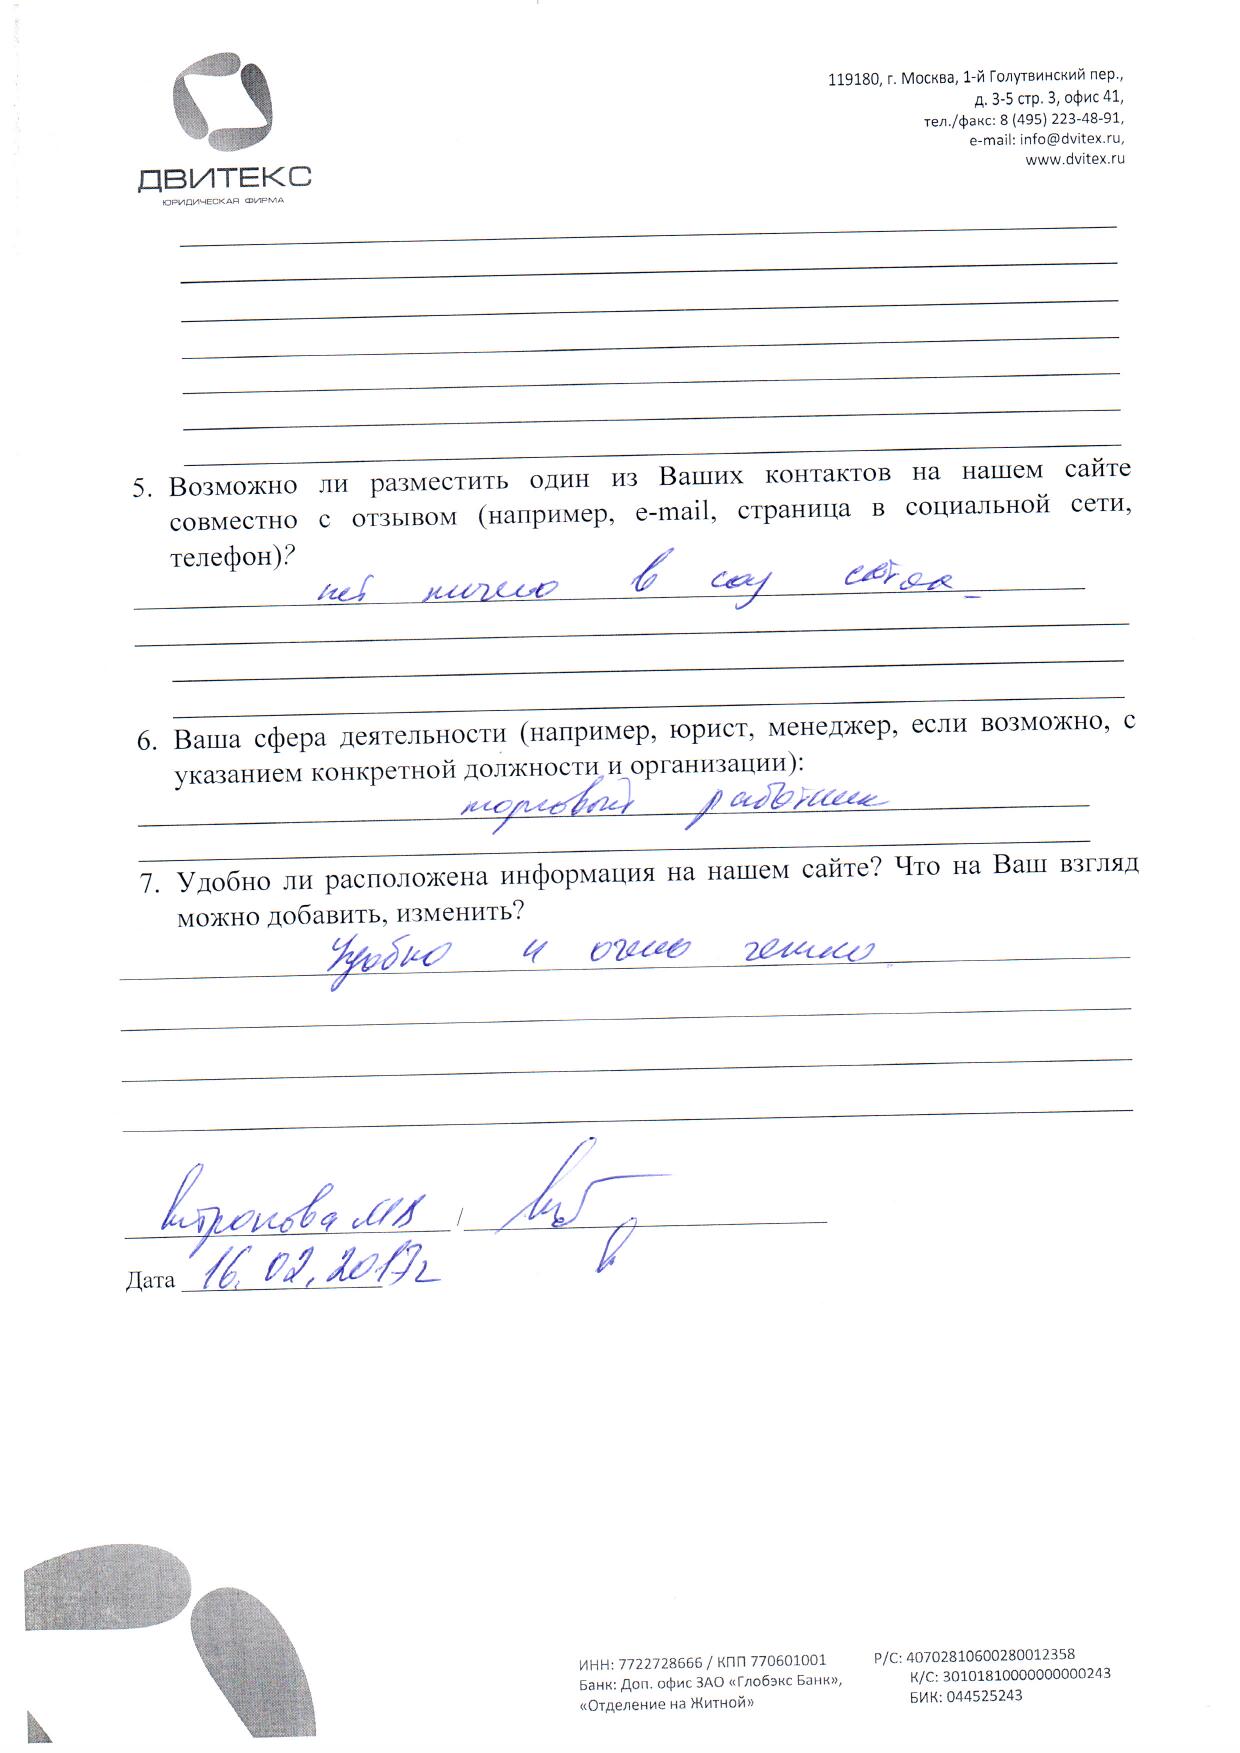 119180, г. Москва, 1-й Голутвинский пер.,
д. 3-5 стр. 3, офис 41,
тел./факс: 8 (495) 223-48-91,
e-mail: info@dvitex.ru,
www.dvitex.ru
ДВИТЕКС
ЮРИДИЧЕСКАЯ ФИРМА
5. Возможно ли разместить один из Ваших контактов на нашем сайте
совместно с отзывом (например, e-mail, страница в социальной сети,
телефон)?
нет ничего в соц сетях
6. Ваша сфера деятельности (например, юрист, менеджер, если возможно, с
указанием конкретной должности и организации):
торговый работник
7. Удобно ли расположена информация на нашем сайте? Что на Ваш взгляд
можно добавить, изменить?
Удобно и очень
МВ /
Дата 16.02.2017г
ИНН: 7722728666 / КПП 770601001 Р/С: 40702810600280012358
Банк: Доп. офис ЗАО «Глобэкс Банк», К/С: 30101810000000000243
«Отделение на Житной» БИК: 044525243